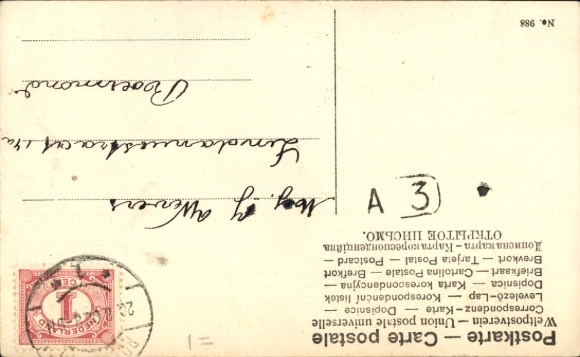 Postkarte — Carte postale
Weltpostverein — Union postale universelle
Correspondenz-Karte — Dopisnice —
Levelező-Lap — Korespondenční lístek
Dopisnica — Karta korespondencyjna
Briefkaart — Cartolina Postale — Brefkort
Brevkort — Tarjeta Postal — Postcard
Дописна карта — Карта кореспонденційна
ОТКРЫТОЕ ПИСЬМО.
No. 988
A 3
1=
NEDERLAND
1 CENT 1
Mej. J Wevers
Roermond